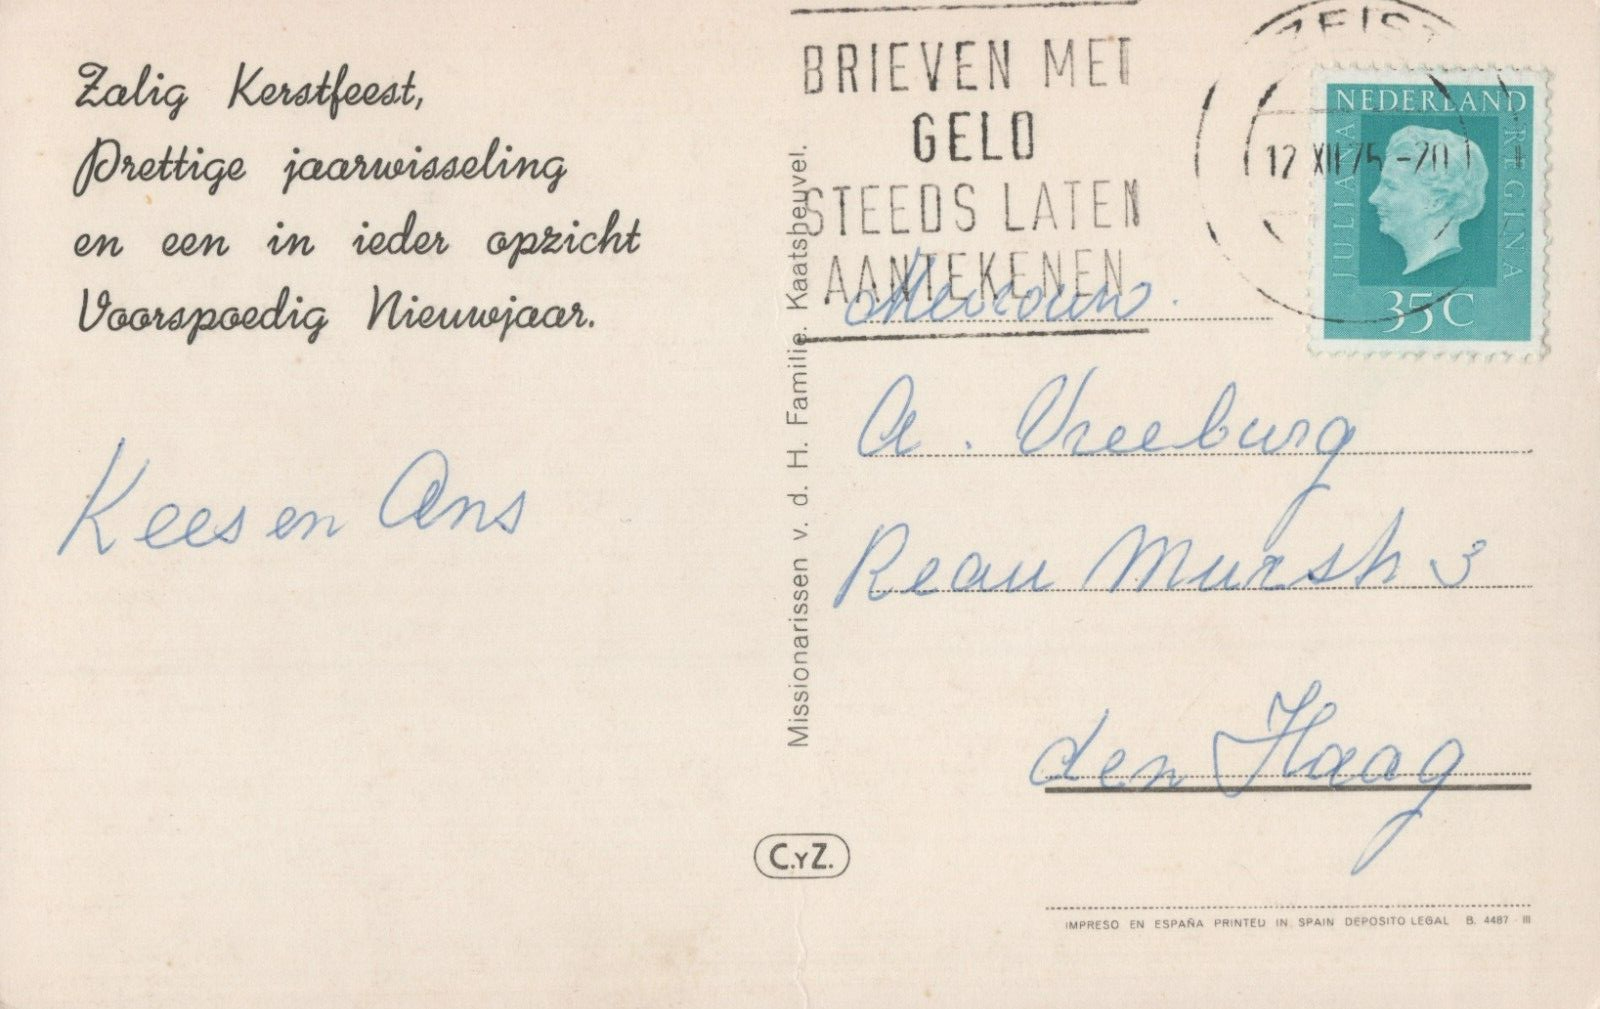 Zalig Kerstfeest,
Prettige jaarwisseling
en een in ieder opzicht
Voorspoedig Nieuwjaar.
Kees en Ans
Missionarissen v. d. H. Familie. Kaatsheuvel.
C.YZ.
BRIEVEN MET
GELD
STEEDS LATEN
AANTEKENEN
ZEIST
12 XII 75 - 20
NEDERLAND
JULIANA
REGINA
35 C
Mevrouw.
A. Vreeburg
Reau Murstr 3
den Haag
IMPRESO EN ESPAÑA PRINTEU IN SPAIN DEPOSITO LEGAL B. 4487 III